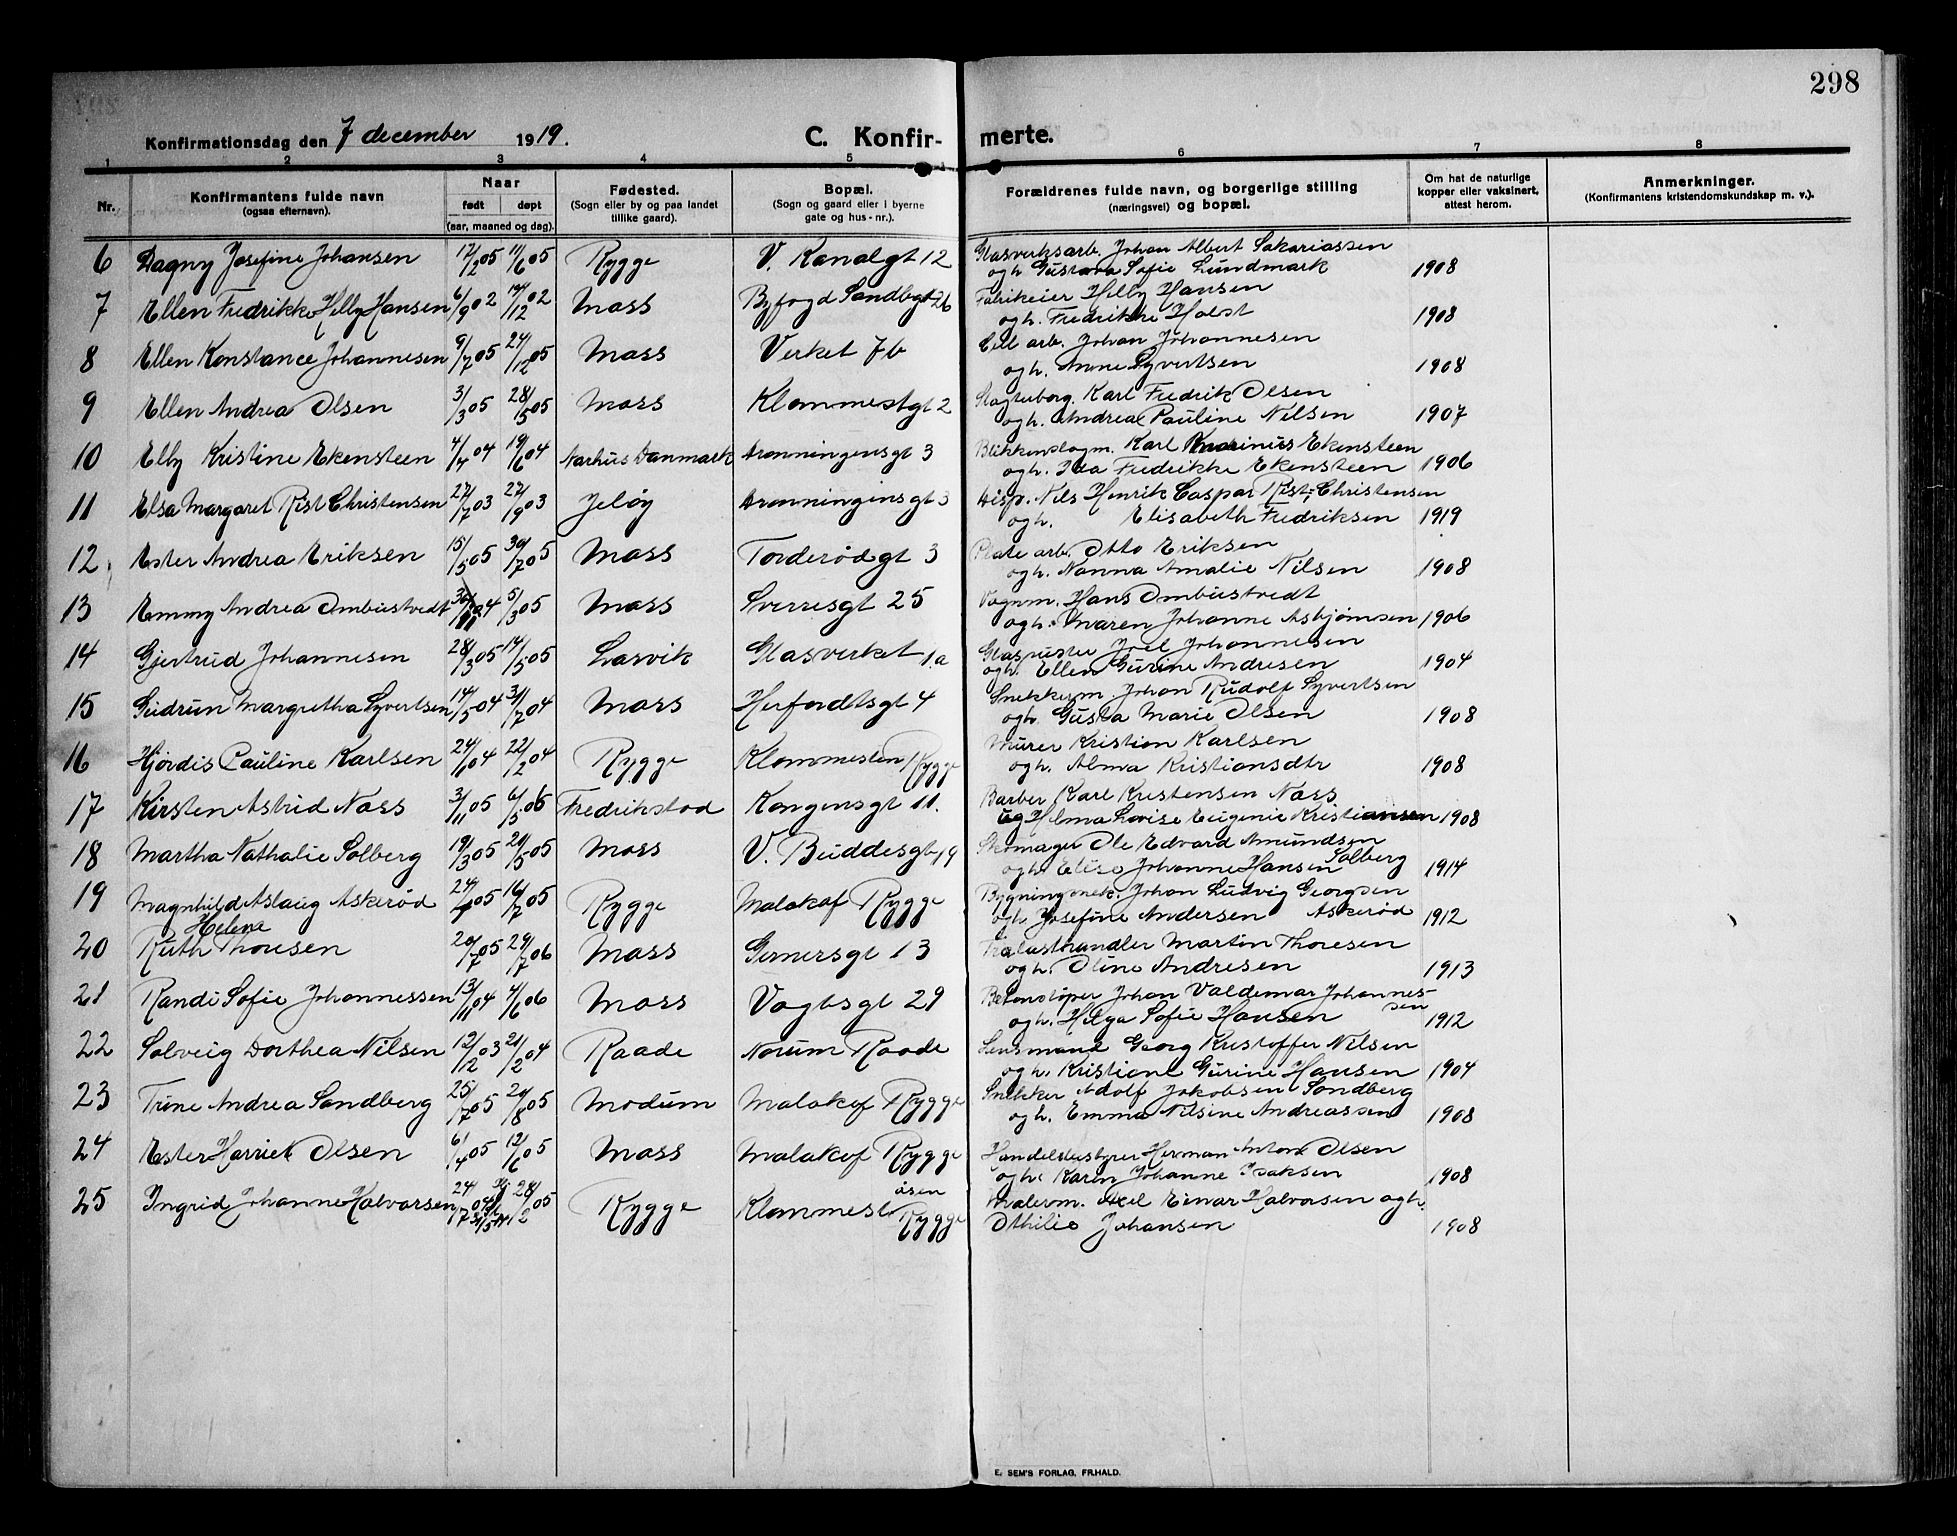 298
Konfirmationsdag den 7 december 1919.
C. Konfir-
merte.
1 2 3 4 5 6 7 8
Nr.
Konfirmantens fulde navn
(ogsaa efternavn).
Naar
født døpt
(aar, maaned og dag).
Fødested.
(Sogn eller by og paa landet
tillike gaard).
Bopæl.
(Sogn og gaard eller i byerne
gate og hus-nr.).
Forældrenes fulde navn, og borgerlige stilling
(næringsvei) og bopæl.
Om hat de naturlige
kopper eller vaksinert,
attest herom.
Anmerkninger.
(Konfirmantens kristendomskundskap m. v.).
6 Dagny Josefine Johansen 17/2 05 11/6 05 Rygge V. Kanalgt 12 Glasverksarb. Johan Albert Sakariassen
og h. Gustava Sofie Lundmark 1908
7 Ellen Fredrikke Helby Hansen 6/9 02 14/12 02 Moss Byfogd Sandbgt 26 Fabrikeier Helby Hansen
og h. Fredrikke Holst 1908
8 Ellen Konstance Johannesen 9/7 05 24/12 05 Moss Verket 7b Cell arb. Johan Johannesen
og h. Anne Syvertsen 1908
9 Ellen Andrea Olsen 3/3 05 28/5 05 Moss Klommestgt 2 Slagterborg. Karl Fredrik Olsen
og h. Andrea Pauline Nilsen 1907
10 Elly Kristine Ekensteen 4/4 04 19/6 04 Aarhus Danmark Dronningensgt 3 Blikkenslagm. Karl Marinius Ekensteen
og h. Ida Fredrikke Ekensteen 1906
11 Elsa Margaret Rist Christensen 27/7 03 27/9 03 Jeløy Dronninginsgt 3 Disp. Nils Henrik Caspar Rist-Christensen
og h. Elisabeth Fredriksen 1919
12 Ester Andrea Eriksen 15/5 05 30/7 05 Moss Torderødgt 3 Plate arb. Otto Eriksen
og h. Nanna Amalie Nilsen 1908
13 Emmy Andrea Ombustvedt 04 5/3 05 Moss Sverresgt 25 Vognm. Hans Ombustvedt
og h. Maren Johanne Asbjørnsen 1906
14 Gjertrud Johannesen 28/3 05 14/5 05 Larvik Glasverket 1a Glaspuster Joel Johannesen
og h. Ellen Gurine Andresen 1904
15 Gudrun Margretha Syvertsen 14/5 04 31/7 04 Moss Herfordtsgt 4 Snekkerm. Johan Rudolf Syvertsen
og h. Gusta Marie Olsen 1908
16 Hjørdis Pauline Karlsen 04 22/12 04 Rygge Klommesten Rygge Murer Kristian Karlsen
og h. Alma Kristiansdtr 1908
17 Kirsten Astrid Næss 3/11 05 6/5 06 Fredrikstad Kongensgt 11. Barber Karl Kristensen Næss
og Helma Lovise Eugenie Kristiansen 1908
18 Martha Nathalie Solberg 19/3 05 21/5 05 Moss V. Buddesgt 19 Skomager Ole Edvard Amundsen
og h. Elise Johanne Hansen Solberg 1914
19 Magnhild Aslaug Askerød 05 16/7 05 Rygge Malakof Rygge Bygningsnek. Johan Ludvig Georgsen
og h. Josefine Andersen Askerød 1912
20 Ruth Helene Thoresen 20/7 05 29/7 06 Moss Gernersgt 13 Trælasthandler Martin Thoresen
og h. Oline Andresen 1913
21 Randi Sofie Johannessen 13/11 04 4/6 06 Moss Vogtsgt 29 Betonstøper Johan Valdemar Johannes-
sen
og h. Helga Sofie Hansen 1912
22 Solveig Dorthea Nilsen 12/12 03 21/2 04 Raade Norum Raade Lensmand Georg Kristoffer Nilsen
og h. Kristiane Gurine Hansen 1904
23 Trine Andrea Sandberg 25/7 05 20/8 05 Modum Malakof Rygge Snekker Adolf Jakobsen Sandberg
og h. Emma Nilsine Andreassen 1908
24 Ester Harriet Olsen 6/4 05 12/6 05 Moss Malakof Rygge Handelsbestyrer Herman Anton Olsen
og h. Karen Johanne Isaksen 1908
25 Ingrid Johanne Halvorsen 24/7 04 28/12 05 Rygge Klommest åsen Rygge Malerm. Axel Einar Halvorsen og h.
Othilie Johansen 1908
E. SEM'S FORLAG, FR.HALD.